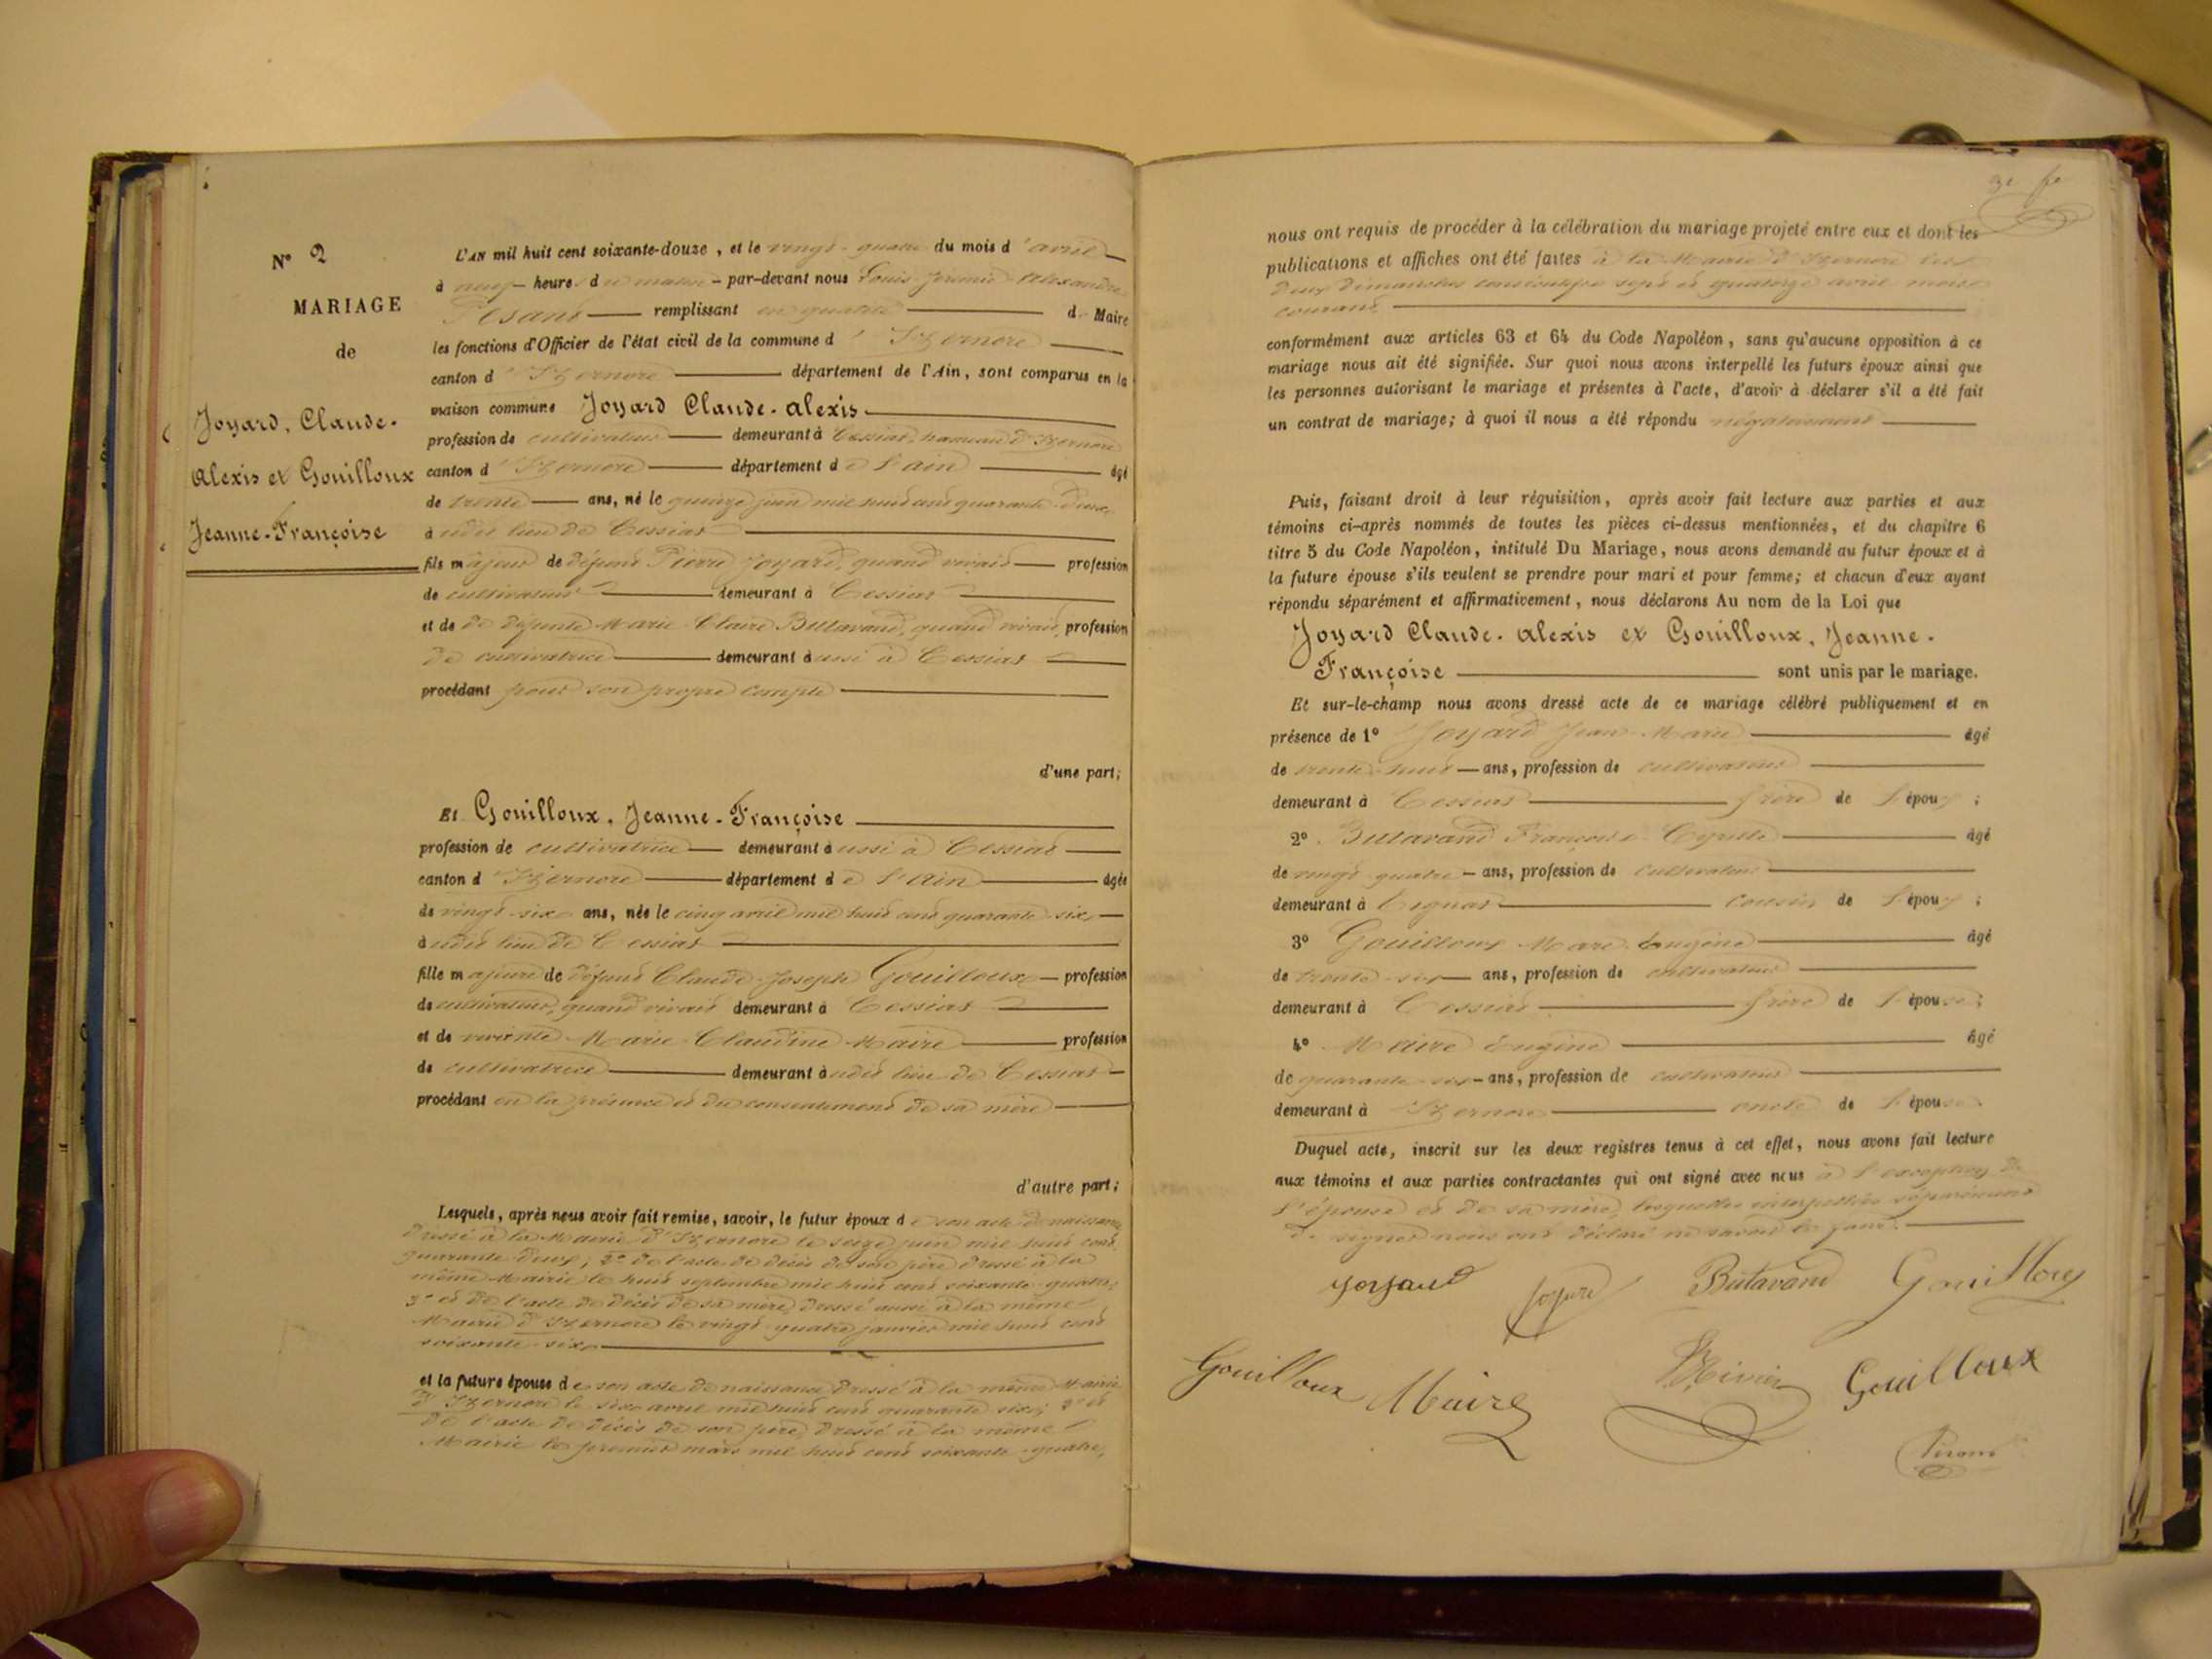 N° 2
MARIAGE
de
Joyard, Claude-
Alexis et Gouilloux
Jeanne-Françoise
L'AN mil huit cent soixante-douze, et le vingt-quatre du mois d'avril
à neuf heures du matin - par-devant nous Louis Jérémie Alexandre
remplissant en qualité de Maire
les fonctions d'Officier de l'état civil de la commune d'Izernore
canton d'Izernore département de l'Ain, sont comparus en la
maison commune Joyard Claude-Alexis
profession de cultivateur demeurant à Cessiat, hameau d'Izernore
canton d'Izernore département de l'Ain âgé
de trente ans, né le quinze juin mil huit cent quarante-deux
à udit lieu de Cessiat
fils majeur de défunt Pierre Joyard, quand vivait profession
de cultivateur demeurant à Cessiat
et de de défunte Marie Claire Butavand, quand vivait, profession
de cultivatrice demeurant aussi à Cessiat
procédant pour son propre compte
d'une part;
Et Gouilloux, Jeanne-Françoise
profession de cultivatrice demeurant aussi à Cessiat
canton d'Izernore département de l'Ain âgée
de vingt-six ans, née le cinq avril mil huit cent quarante-six
à udit lieu de Cessiat
fille majeure de défunt Claude-Joseph Gouilloux profession
de cultivateur, quand vivait demeurant à Cessiat
et de vivante Marie Claudine Maire profession
de cultivatrice demeurant audit lieu de Cessiat
procédant en la présence et du consentement de sa mère
d'autre part;
Lesquels, après nous avoir fait remise, savoir, le futur époux de son acte de naissance
dressé à la Mairie d'Izernore le seize juin mil huit cent
quarante-deux; 2° de l'acte de décès de son père dressé à la
même Mairie le huit septembre mil huit cent soixante-quatre;
3° et de l'acte de décès de sa mère, dressé aussi à la même
Mairie d'Izernore le vingt-quatre janvier mil huit cent
soixante-six
et la future épouse de son acte de naissance dressé à la même Mairie
d'Izernore le six avril mil huit cent quarante-six; 2° et
de l'acte de décès de son père dressé à la même
Mairie le premier mars mil huit cent soixante-quatre,
nous ont requis de procéder à la célébration du mariage projeté entre eux et dont les
publications et affiches ont été faites à la Mairie d'Izernore les
deux dimanches consécutifs sept et quatorze avril mois
courant
conformément aux articles 63 et 64 du Code Napoléon, sans qu'aucune opposition à ce
mariage nous ait été signifiée. Sur quoi nous avons interpellé les futurs époux ainsi que
les personnes autorisant le mariage et présentes à l'acte, d'avoir à déclarer s'il a été fait
un contrat de mariage; à quoi il nous a été répondu négativement
Puis, faisant droit à leur réquisition, après avoir fait lecture aux parties et aux
témoins ci-après nommés de toutes les pièces ci-dessus mentionnées, et du chapitre 6
titre 5 du Code Napoléon, intitulé Du Mariage, nous avons demandé au futur époux et à
la future épouse s'ils veulent se prendre pour mari et pour femme; et chacun d'eux ayant
répondu séparément et affirmativement, nous déclarons Au nom de la Loi que
Joyard Claude-Alexis et Gouilloux, Jeanne-
Françoise sont unis par le mariage.
Et sur-le-champ nous avons dressé acte de ce mariage célébré publiquement et en
présence de 1° Joyard Jean-Marie âgé
de trente-huit ans, profession de cultivateur
demeurant à Cessiat frère de l'époux;
2° Butavand François-Cyrille âgé
de vingt-quatre ans, profession de cultivateur
demeurant à cousin de l'époux;
3° Gouilloux Marc-Eugène âgé
de trente-six ans, profession de cultivateur
demeurant à Cessiat frère de l'épouse;
4° Maire Eugène âgé
de quarante-six ans, profession de cultivateur
demeurant à Izernore oncle de l'épouse
Duquel acte, inscrit sur les deux registres tenus à cet effet, nous avons fait lecture
aux témoins et aux parties contractantes qui ont signé avec nous à l'exception de
l'épouse et de sa mère, lesquelles interpellées séparément
de signer nous ont déclaré ne savoir le faire.
Joyard Joyard Butavand Gouilloux
Gouilloux Maire Rivier Gouilloux